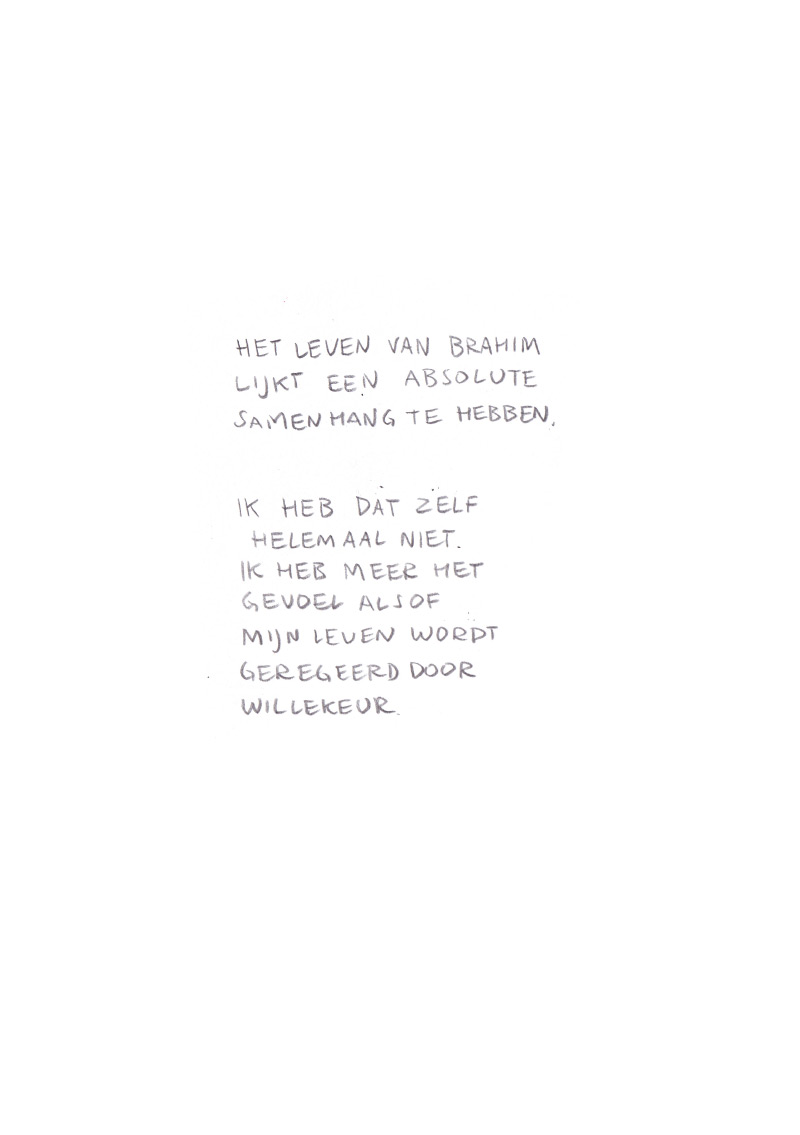 HET LEVEN VAN BRAHIM
LIJKT EEN ABSOLUTE
SAMENHANG TE HEBBEN.
IK HEB DAT ZELF
HELEMAAL NIET.
IK HEB MEER HET
GEVOEL ALSOF
MIJN LEVEN WORDT
GEREGEERD DOOR
WILLEKEUR.